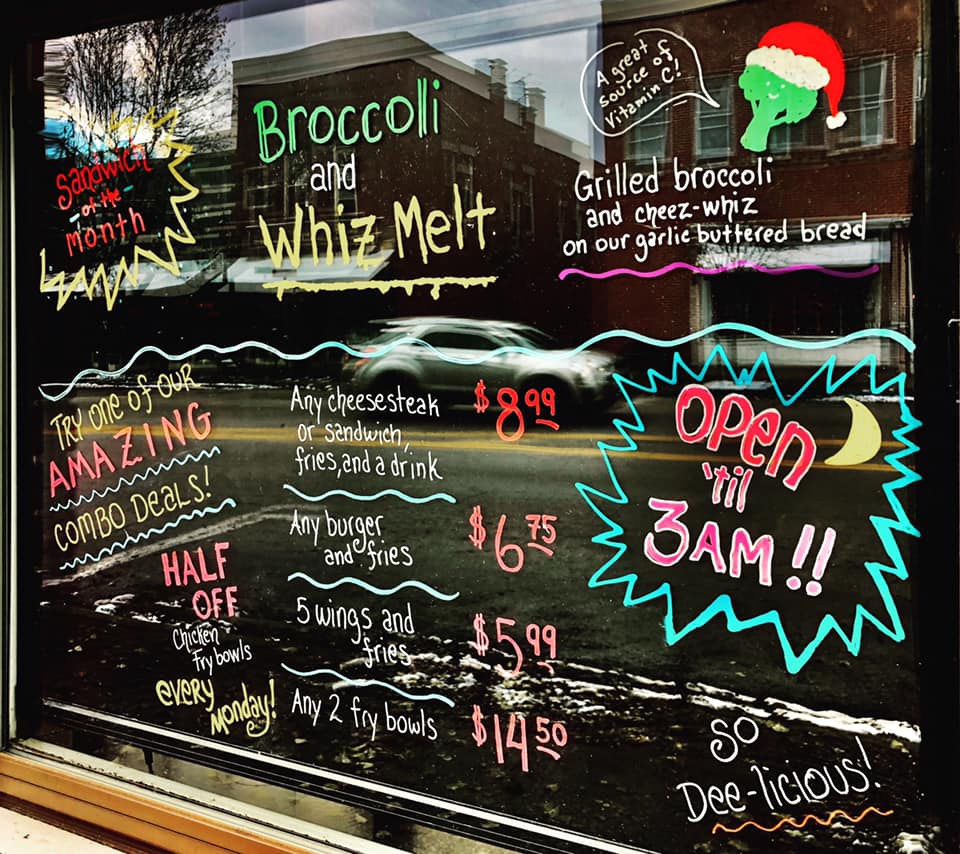 Sandwich
of the
month
Broccoli
and
Whiz Melt
A great
source of
Vitamin C!
Grilled broccoli
and cheez-whiz
on our garlic buttered bread
Try one of our
AMAZING
COMBO DEALS!
HALF
OFF
Chicken
Fry bowls
every
Monday!
Any cheesesteak
or sandwich,
fries, and a drink
$8.99
Any burger
and fries
$6.75
5 wings and
fries
$5.99
Any 2 fry bowls
$14.50
OPen
'til
3AM!!
SO
Dee-licious!